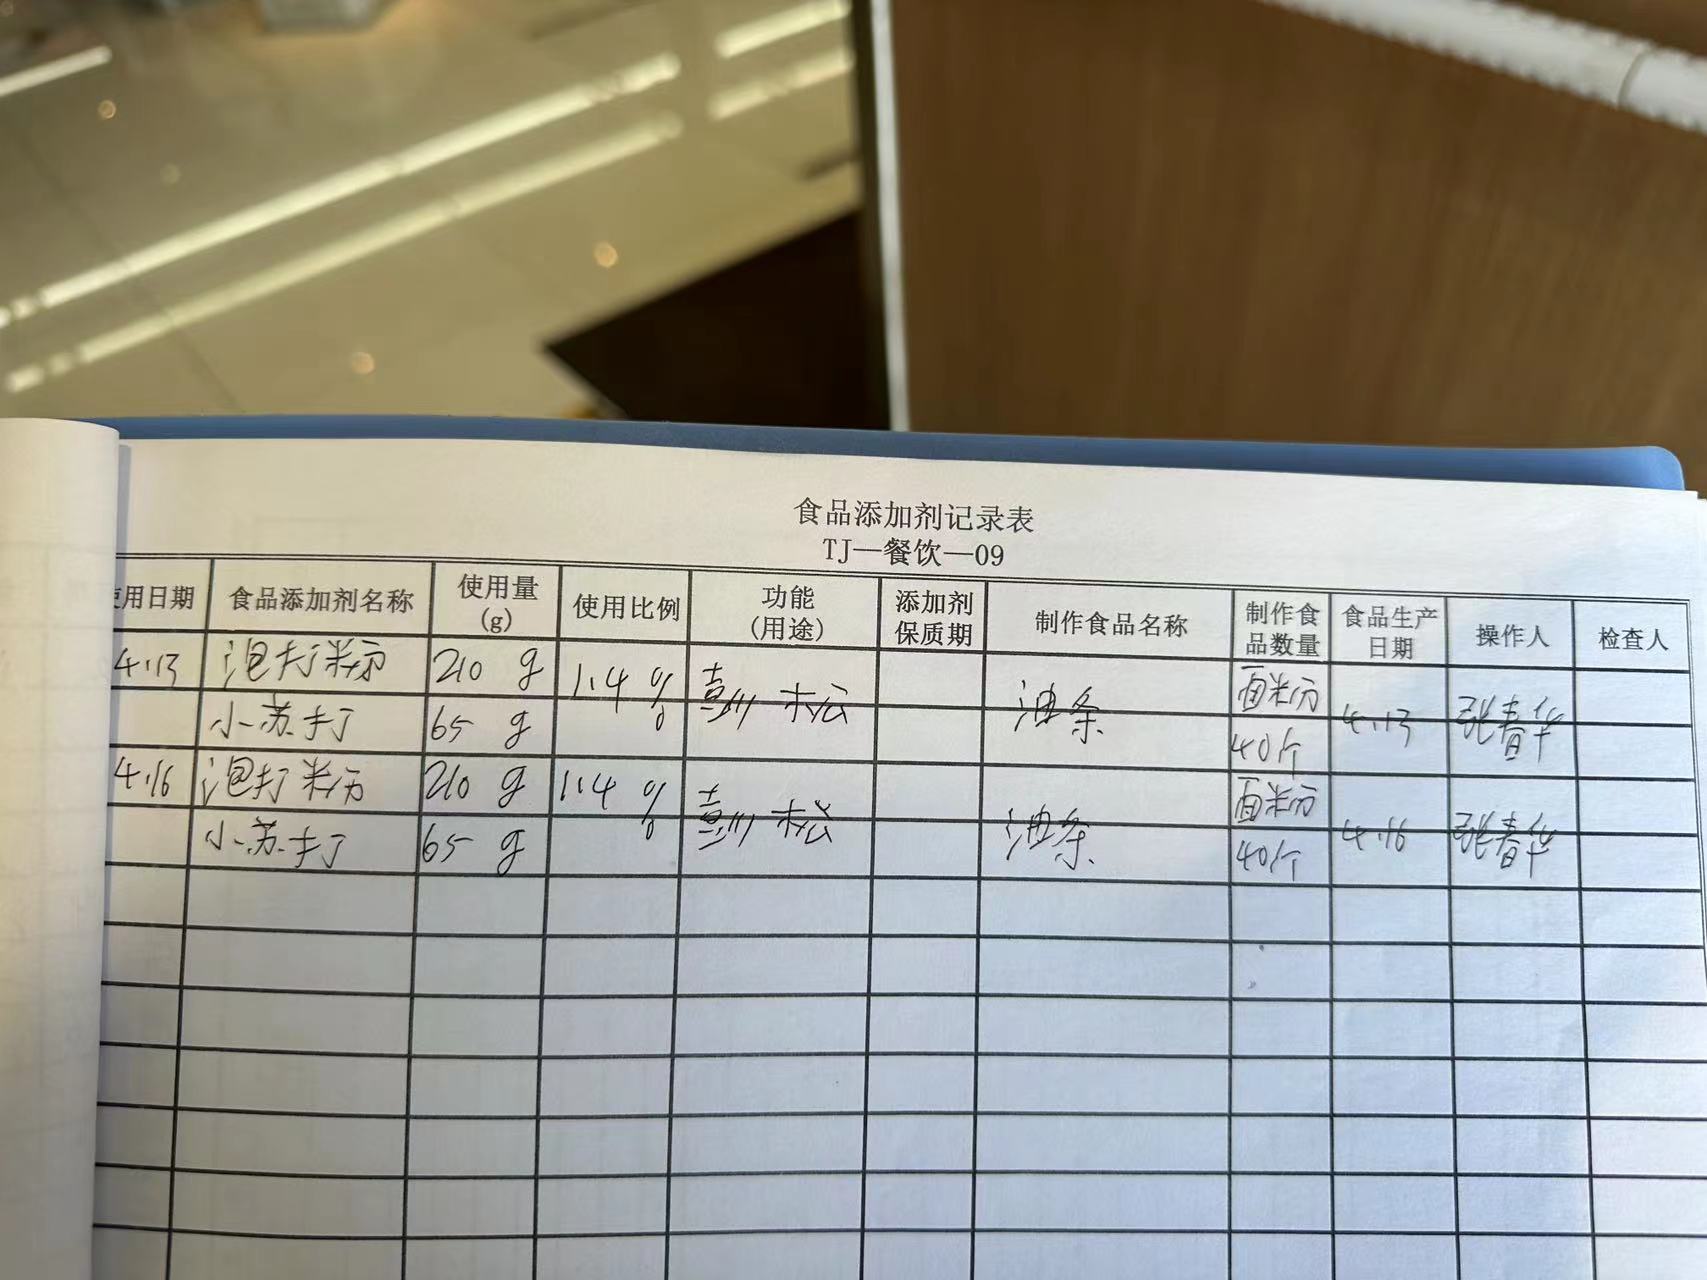 食品添加剂记录表
TJ—餐饮—09
使用日期 食品添加剂名称 使用量(g) 使用比例 功能(用途) 添加剂保质期 制作食品名称 制作食品数量 食品生产日期 操作人 检查人
4.13 泡打粉 210 g 1.4 % 油条 面粉 4.13 张春华
小苏打 65 g 40个
4.16 泡打粉 210 g 1.4 % 油条 面粉 4.16 张春华
小苏打 65 g 40个